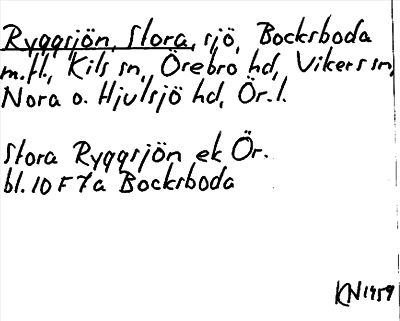 Ryggsjön, Stora, sjö, Bocksboda
m.fl., Kils sn, Örebro hd, Vikers sn,
Nora o. Hjulsjö hd, Ör. l.
Stora Ryggsjön ek Ör.
bl. 10 F 7a Bocksboda
KN 1959